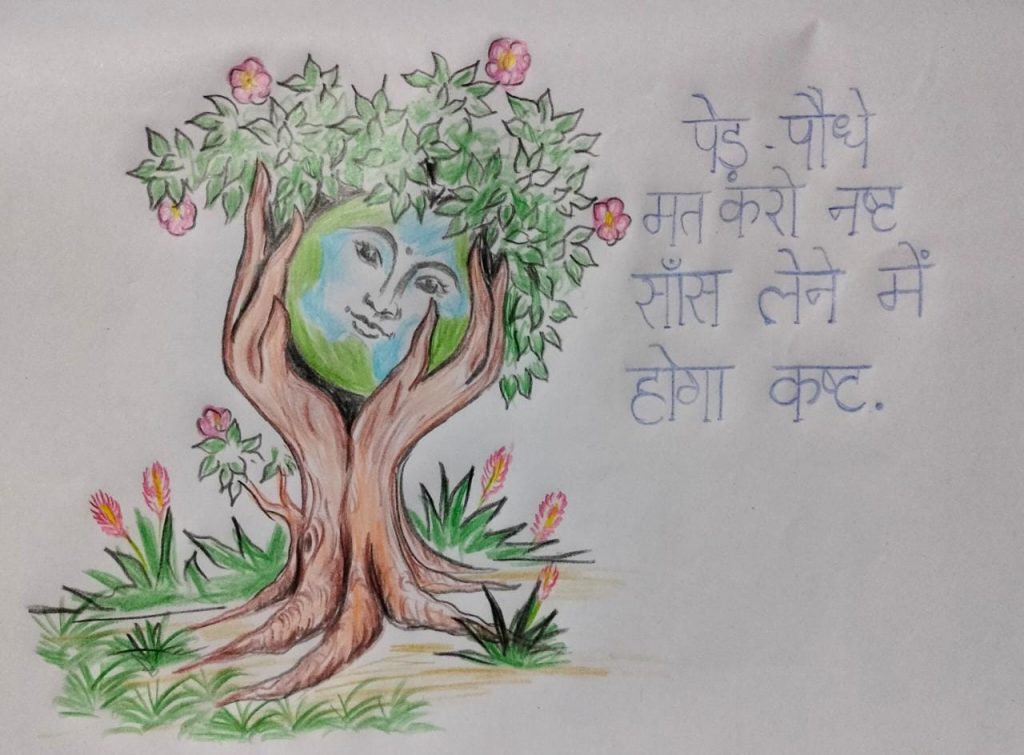 पेड़-पौधे
मत करो नष्ट
साँस लेने में
होगा कष्ट.